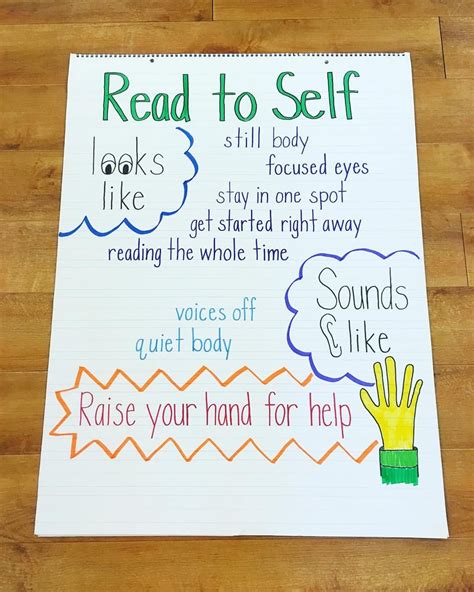 Read to Self
looks
like
still body
focused eyes
stay in one spot
get started right away
reading the whole time
Sounds
like
voices off
quiet body
Raise your hand for help